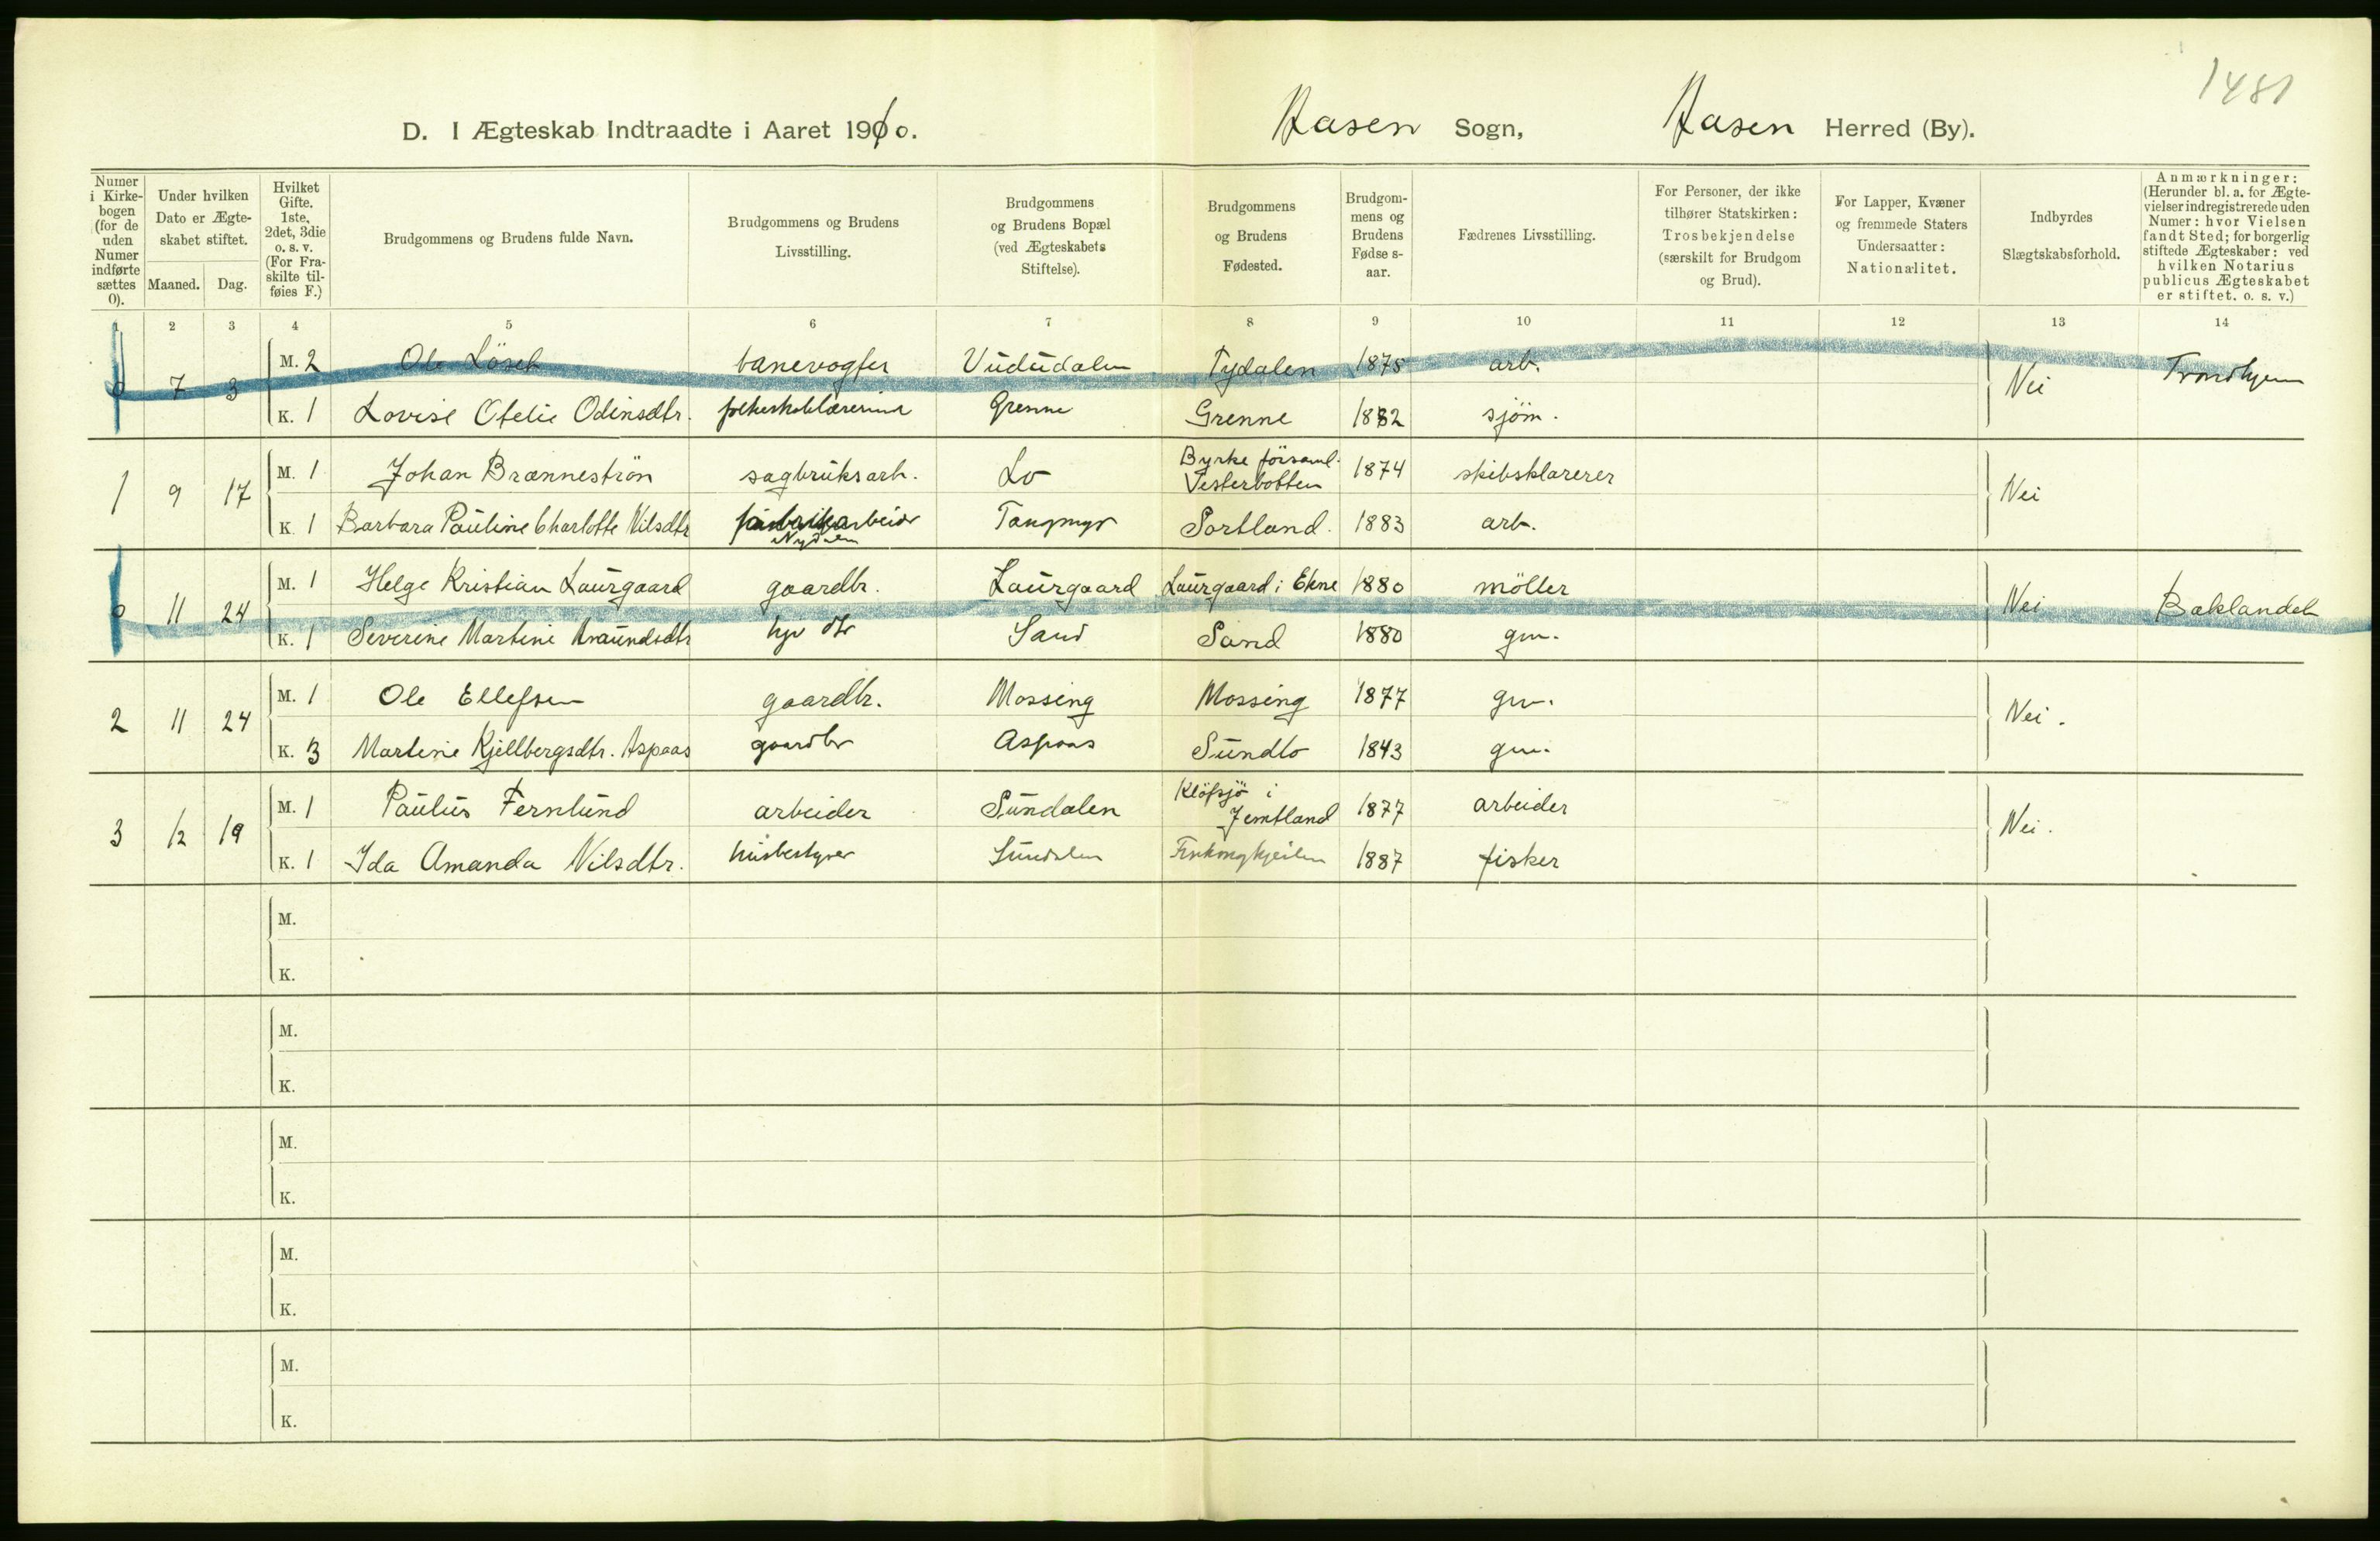 1481
D. I Ægteskab Indtraadte i Aaret 1910. Aasen Sogn, Aasen Herred (By).
Numer i Kirke-bogen (for de uden Numer indførte sættes 0).
Under hvilken Dato er Ægte-skabet stiftet.
Maaned. Dag.
Hvilket Gifte. 1ste, 2det, 3die o. s. v. (For Fra-skilte til-føies F.)
Brudgommens og Brudens fulde Navn.
Brudgommens og Brudens Livsstilling.
Brudgommens og Brudens Bopæl (ved Ægteskabets Stiftelse).
Brudgommens og Brudens Fødested.
Brudgom-mens og Brudens Fødse s-aar.
Fædrenes Livsstilling.
For Personer, der ikke tilhører Statskirken: Trosbekjendelse (særskilt for Brudgom og Brud).
For Lapper, Kvæner og fremmede Staters Undersaatter: Nationalitet.
Indbyrdes Slægtskabsforhold.
Anmærkninger: (Herunder bl. a. for Ægte-vielser indregistrerede uden Numer: hvor Vielsen fandt Sted; for borgerlig stiftede Ægteskaber: ved hvilken Notarius publicus Ægteskabet er stiftet. o. s. v.)
1 2 3 4 5 6 7 8 9 10 11 12 13 14
0 7 3 M. 2 Ole Löseth banevogter Vududalen Tydalen 1875 arb. Nei Trondhjem
K. 1 Lovise Ofelie Odinsdtr. Grenne Grenne 1882 sjöm.
1 9 17 M. 1 Johan Brænneström sagbruksarb. Lo Byrke församl. Vesterbotten 1874 skibsklarerer Nei
K. 1 Barbara Pauline Charlotte Nilsdtr fabrikarbeider Tangmyr Sortland. 1883 arb.
0 11 24 M. 1 Helge Kristian Laurgaard gaardbr. Laurgaard Laurgaard i Ekne 1880 möller Nei Baklandet
K. 1 Severine Martine Sand Sand 1880 gm.
2 11 24 M. 1 Ole Ellefsen gaardbr. Mossing Mossing 1877 gm. Nei.
K. 3 Martine Kjellbergsdtr. Aspaas gaardbr Aspaas Sundlo 1843 gm.
3 12 19 M. 1 Paulus Fernlund arbeider Sundalen Klöfsjö i Jemtland 1877 arbeider Nei.
K. 1 Ida Amanda Nilsdtr. husbestyrer Sundalen 1887 fisker
M.
K.
M.
K.
M.
K.
M.
K.
M.
K.